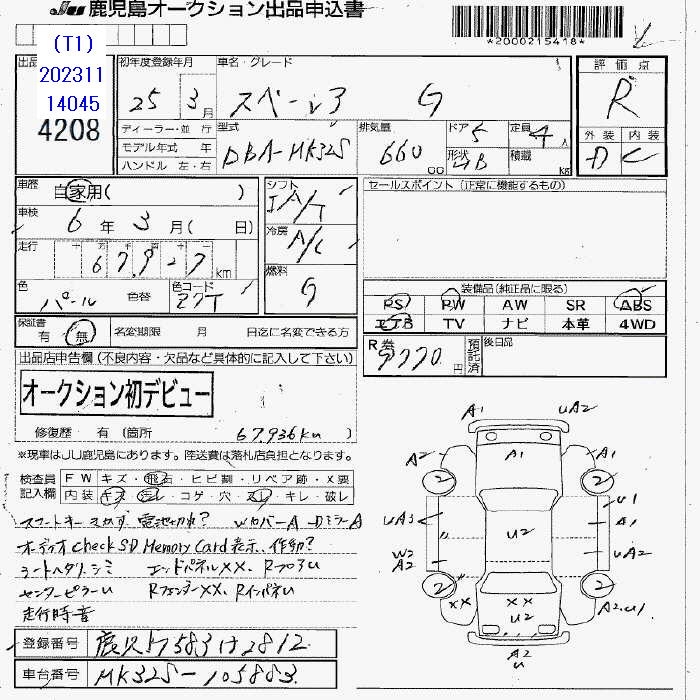 鹿児島オークション出品申込書
*2000215418*
(T1)
202311
14045
4208
初年度登録年月
25 3月
車名・グレード
スペーシア G
評価点
R
外装 内装
D C
ディーラー・並行
モデル年式 年
ハンドル 左・右
型式
DBA-MK32S
排気量
660
cc
ドア 5
形状 HB
定員 4人
積載 kg
車歴
自家用( )
車検
6年 3月( 日)
走行
十 万 千 百 十
67,927 km
色
パール
色替
色コード
Z7T
シフト
IA/T
冷房
A/C
燃料
G
セールスポイント (正常に機能するもの)
装備品(純正品に限る)
PS PW AW SR ABS
エアB TV ナビ 本革 4WD
保証書
有 無
名変期限 月 日迄に名変できる方
R券
9770円
預託済
後日品
出品店申告欄 (不良内容・欠品など具体的に記入して下さい)
オークション初デビュー
修復歴 有 (箇所
67.936km
)
※現車はJU鹿児島にあります。陸送費は落札店負担となります。
検査員記入欄
FW キズ・飛石・ヒビ割・リペア跡・X要
内装 キズ・汚レ・コゲ・穴・スレ・キレ・破レ
スマートキーきかず 電池切れ? WカバーA DミラーA
オーディオ Check SD Memory Card 表示、作動?
シートヘタリ、シミ エンドパネルXX、RフロアU
センターピラーU RフェンダーXX、RインパネU
走行時音
登録番号 鹿児島583け2812
車台番号 MK32S-105883
A1 UA2
A2 A1 A1
2 2
UA3 U1
A1
U2
W2
A2
UA2
2 2
XX XX A2.U1
U2
A2
U